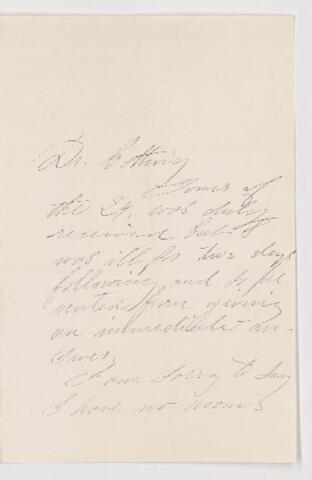 Dr. Cotting
Yours of
the 24, was duly
received but I
was ill for two days
following and so pre-
vented from giving
an immediate an-
swer.
I am sorry to say
I have no rooms